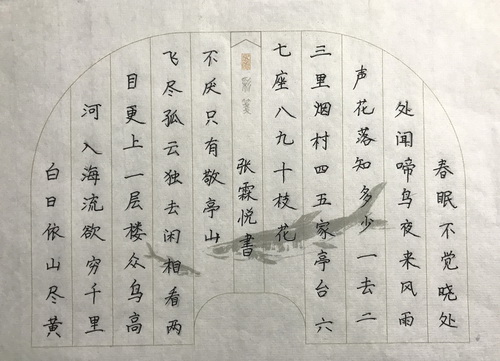 春眠不觉晓处
处闻啼鸟夜来风雨
声花落知多少一去二
三里烟村四五家亭台六
七座八九十枝花
张霖悦書
不厌只有敬亭山
飞尽孤云独去闲相看两
目更上一层楼众鸟高
河入海流欲穷千里
白日依山尽黄